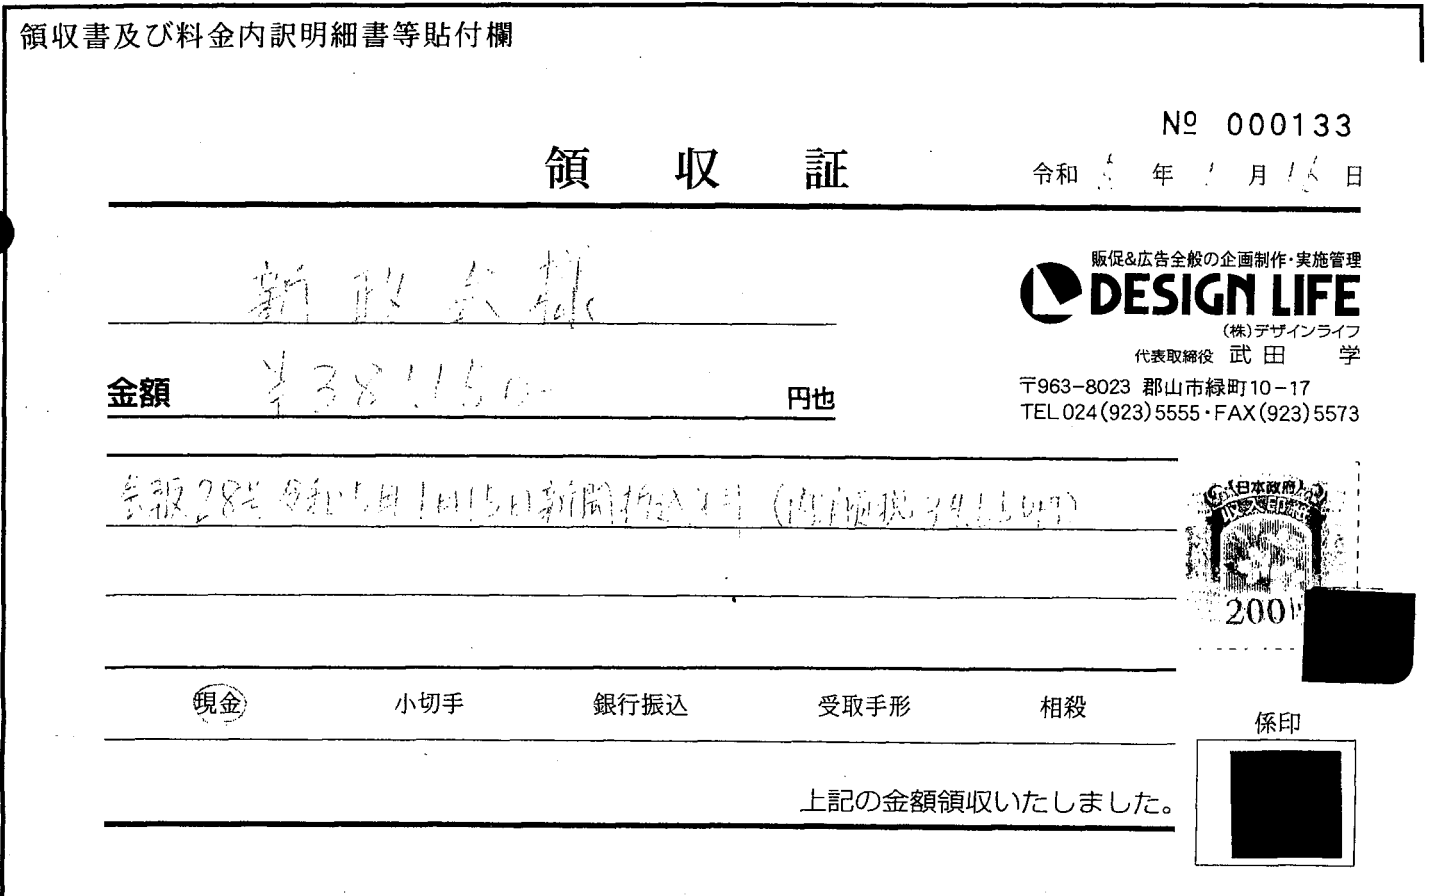 領収書及び料金内訳明細書等貼付欄
№ 000133
領収証
令和 5 年 1 月 日
新政会様
金額 円也
販促&広告全般の企画制作・実施管理
DESIGN LIFE
(株)デザインライフ
代表取締役 武田 学
〒963-8023 郡山市緑町10-17
TEL 024(923)5555・FAX(923)5573
会報28号 令和5年1月15日新聞折込
日本政府
200
現金 小切手 銀行振込 受取手形 相殺
係印
上記の金額領収いたしました。